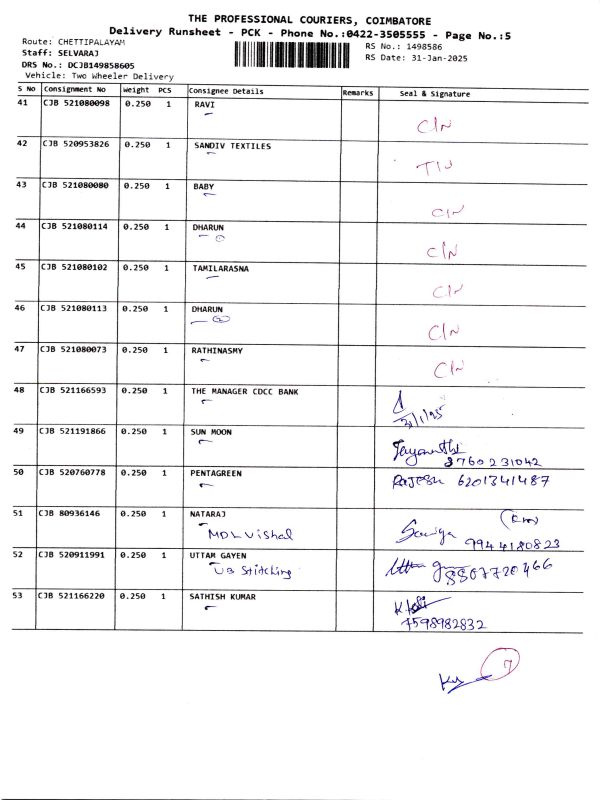 THE PROFESSIONAL COURIERS, COIMBATORE
Delivery Runsheet - PCK - Phone No.:0422-3505555 - Page No.:5
Route: CHETTIPALAYAM
RS No.: 1498586
Staff: SELVARAJ
RS Date: 31-Jan-2025
DRS No.: DCJB149858605
Vehicle: Two Wheeler Delivery
S No Consignment No Weight PCS Consignee Details Remarks Seal & Signature
41 CJB 521080098 0.250 1 RAVI
C/N
42 CJB 520953826 0.250 1 SANDIV TEXTILES
T/N
43 CJB 521080080 0.250 1 BABY
C/N
44 CJB 521080114 0.250 1 DHARUN
C/N
45 CJB 521080102 0.250 1 TAMILARASNA
C/N
46 CJB 521080113 0.250 1 DHARUN
C/N
47 CJB 521080073 0.250 1 RATHINASMY
C/N
48 CJB 521166593 0.250 1 THE MANAGER CDCC BANK
31/1/25
49 CJB 521191866 0.250 1 SUN MOON
Jayanthi
8760231042
50 CJB 520760778 0.250 1 PENTAGREEN
RAJESH 6201341487
51 CJB 80936146 0.250 1 NATARAJ
MDL Vishal
9944180823
52 CJB 520911991 0.250 1 UTTAM GAYEN
UB Stitching
8807720466
53 CJB 521166220 0.250 1 SATHISH KUMAR
7598982832
7